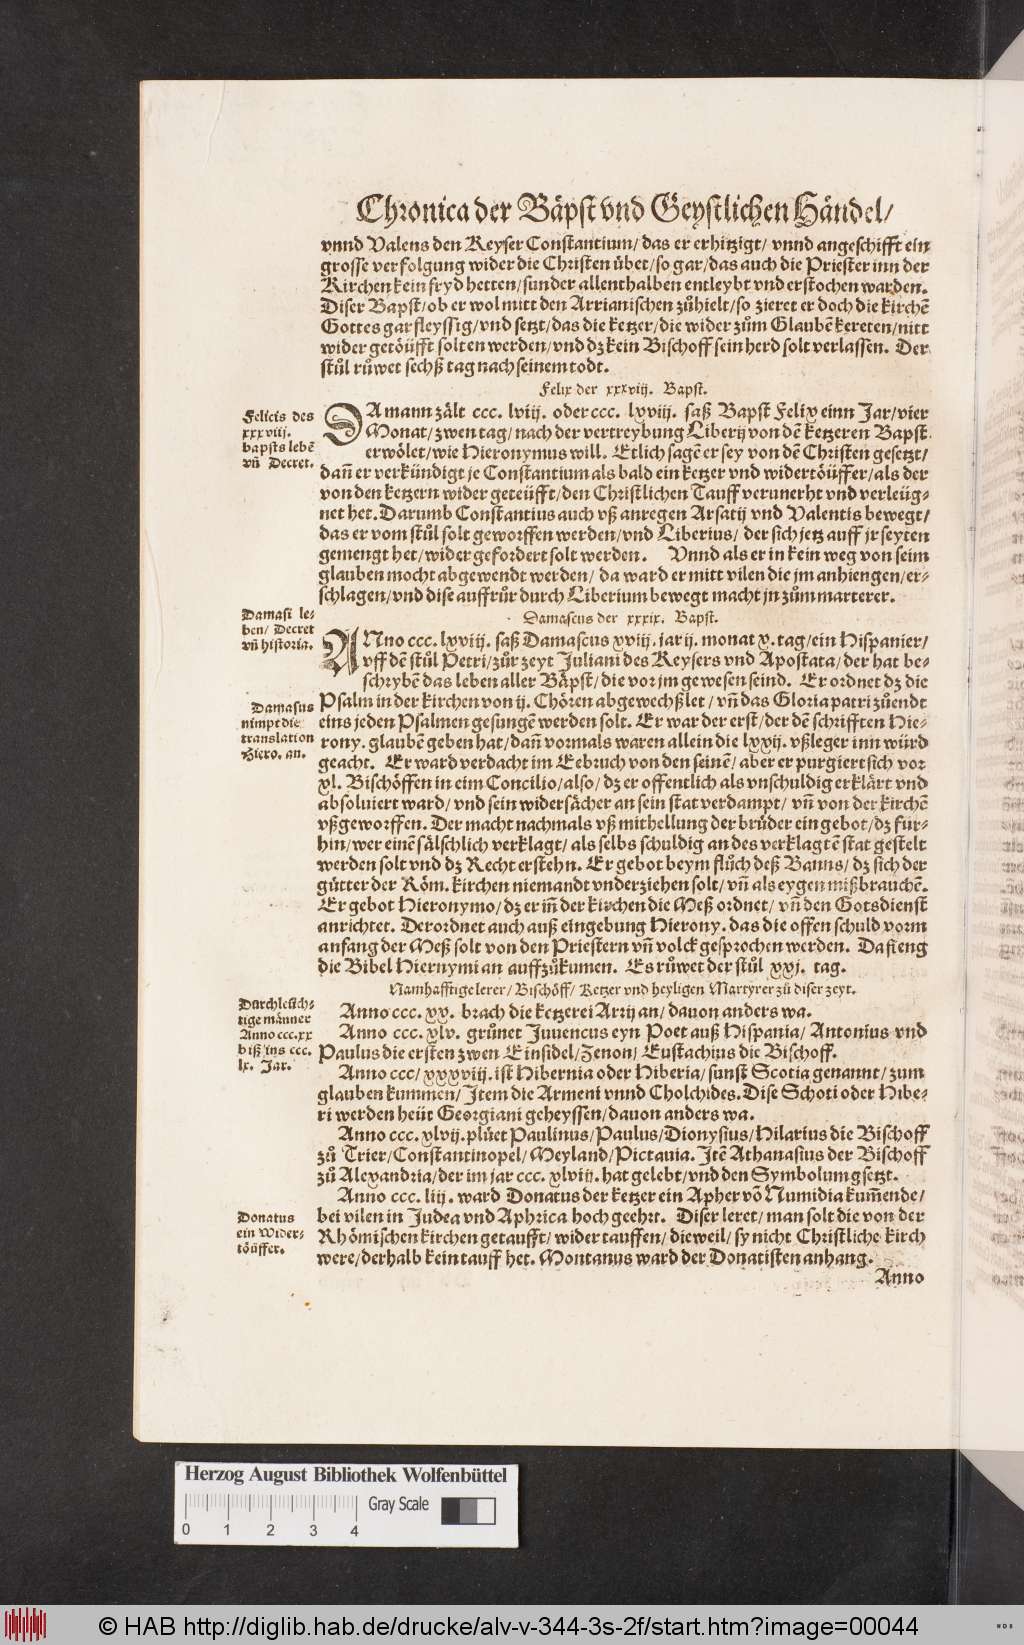 Chronica der Bäpst vnd Geystlichen Händel/
vnnd Valens den Keyser Constantium/ das er erhitzigt/ vnnd angeschifft ein
grosse verfolgung wider die Christen übet/ so gar/ das auch die Priester inn der
Kirchen kein fryd hetten/ sunder allenthalben entleybt vnd erstochen warden.
Diser Bapst/ ob er wol mitt den Arrianischen zůhielt/ so zieret er doch die kirchē
Gottes gar fleyssig/ vnd setzt/ das die ketzer/ die wider zům Glaubē kereten/ nitt
wider getöüfft solten werden/ vnd dz kein Bischoff sein herd solt verlassen. Der
stůl růwet sechß tag nach seinem todt.
Felix der xxxviij. Bapst.
Felicis des
xxxviij.
bapsts lebē
vñ Decret.
DA mann zält ccc. lviij. oder ccc. lxviij. saß Bapst Felix einn Jar/ vier
Monat/ zwen tag/ nach der vertreybung Liberij von dē ketzeren Bapst
erwölet/ wie Hieronymus will. Etlich sagē er sey von dē Christen gesetzt/
dañ er verkündigt je Constantium als bald ein ketzer vnd widertöüffer/ als der
von den ketzern wider geteüfft/ den Christlichen Tauff verunerht vnd verleüg-
net het. Darumb Constantius auch vß anregen Arsatij vnd Valentis bewegt/
das er vom stůl solt geworffen werden/ vnd Liberius/ der sich jetz auff jr seyten
gemengt het/ wider gefordert solt werden. Vnnd als er in kein weg von seim
glauben mocht abgewendt werden/ da ward er mitt vilen die jm anhiengen/ er-
schlagen/ vnd dise auffrůr durch Liberium bewegt macht jn zům marterer.
Damascus der xxxix. Bapst.
Damasi le-
ben/ Decret
vñ historia.
ANno ccc. lxviij. saß Damascus xviij. jar ij. monat x. tag/ ein Hispanier/
vff dē stůl Petri/ zůr zeyt Juliani des Keysers vnd Apostata/ der hat be-
schrybē das leben aller Bäpst/ die vor jm gewesen seind. Er ordnet dz die
Damasus
nimpt die
translation
Hiero. an.
Psalm in der kirchen von ij. Chören abgewechßlet/ vñ das Gloria patri zůendt
eins jeden Psalmen gesungē werden solt. Er war der erst/ der dē schrifften Hie-
rony. glaubē geben hat/ dañ vormals waren allein die lxxij. vßleger inn würd
geacht. Er ward verdacht im Eebruch von den seinē/ aber er purgiert sich vor
xl. Bischöffen in eim Concilio/ also/ dz er offentlich als vnschuldig erklärt vnd
absoluiert ward/ vnd sein widersächer an sein stat verdampt/ vñ von der kirchē
vßgeworffen. Der macht nachmals vß mithellung der brüder ein gebot/ dz fur-
hin/ wer einē fälschlich verklagt/ als selbs schuldig an des verklagtē stat gestelt
werden solt vnd dz Recht erstehn. Er gebot beym flůch deß Banns/ dz sich der
gütter der Röm. kirchen niemandt vnderziehen solt/ vñ als eygen mißbrauchē.
Er gebot Hieronymo/ dz er iñ der kirchen die Meß ordnet/ vñ den Gotsdienst
anrichtet. Der ordnet auch auß eingebung Hierony. das die offen schuld vorm
anfang der Meß solt von den Priestern vñ volck gesprochen werden. Da fieng
die Bibel Hiernymi an auffzůkumen. Es růwet der stůl xxj. tag.
Namhafftige lerer/ Bischöff/ Ketzer vnd heyligen Martyrer zů diser zeyt.
Durchleüch-
tige männer
Anno ccc. xx
biß ins ccc.
lx. Jar.
Anno ccc. xx. brach die ketzerei Arrij an/ dauon anders wa.
Anno ccc. xlv. grůnet Juuencus eyn Poet auß Hispania/ Antonius vnd
Paulus die ersten zwen Einsidel/ Zenon/ Eustachius die Bischoff.
Anno ccc/ xxxviij. ist Hibernia oder Hiberia/ sunst Scotia genannt/ zum
glauben kummen/ Item die Armeni vnnd Cholchides. Dise Schoti oder Hibe-
ri werden heüt Georgiani geheyssen/ dauon anders wa.
Anno ccc. xlvij. plüet Paulinus/ Paulus/ Dionysius/ Hilarius die Bischoff
zů Trier/ Constantinopel/ Meyland/ Pictauia. Itē Athanasius der Bischoff
zů Alexandria/ der im jar ccc. xlviij. hat gelebt/ vnd den Symbolum gsetzt.
Anno ccc. liij. ward Donatus der ketzer ein Apher võ Numidia kum̃ende/
Donatus
ein Wider-
töüffer.
bei vilen in Judea vnd Aphrica hoch geehrt. Diser leret/ man solt die von der
Rhömischen kirchen getaufft/ wider tauffen/ dieweil/ sy nicht Christliche kirch
were/ derhalb kein tauff het. Montanus ward der Donatisten anhang.
Anno
Herzog August Bibliothek Wolfenbüttel
Gray Scale
0 1 2 3 4
© HAB http://diglib.hab.de/drucke/alv-v-344-3s-2f/start.htm?image=00044